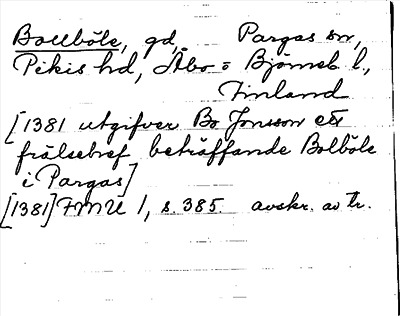 Bollböle, gd, Pargas sn,
Pikis hd, Åbo o Björneb l,
Finland
[1381 utgifver Bo Jonsson ett
frälsebref beträffande Bolböle
i Pargas]
[1381] FMU 1, s. 385. avskr. av tr.